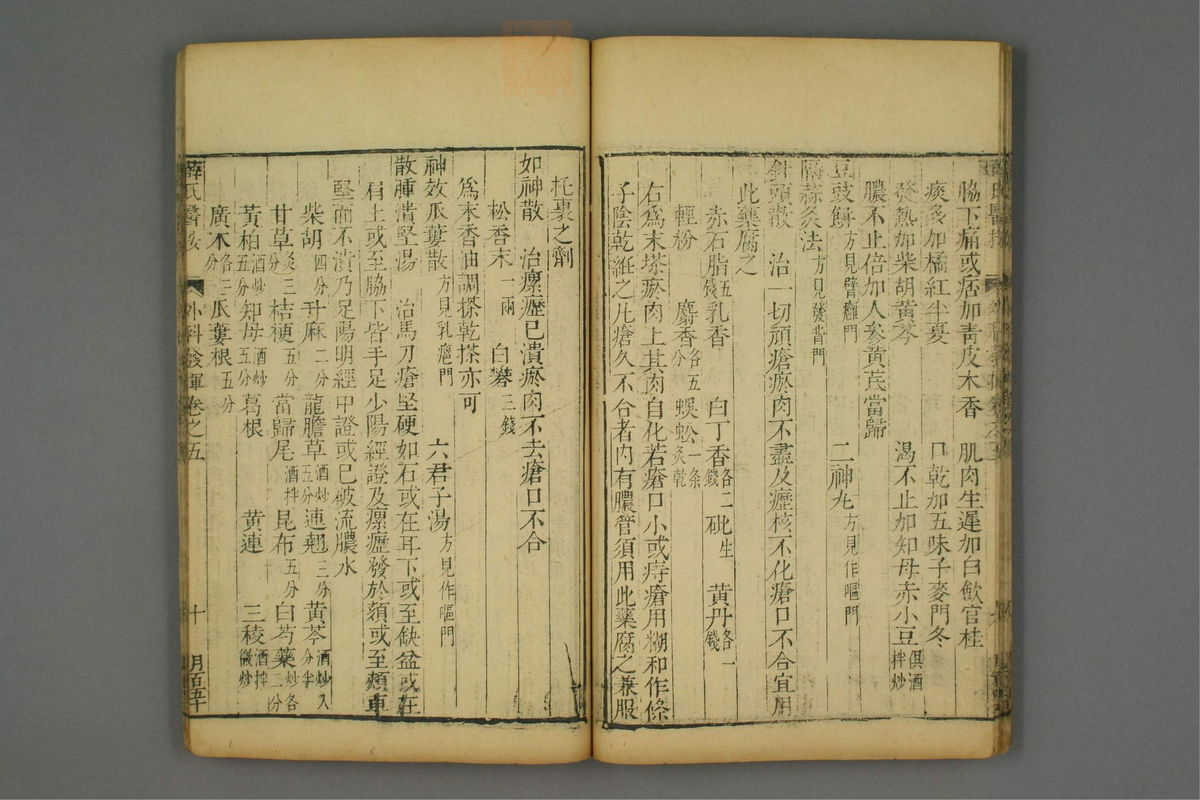 脇下痛或痞加靑皮木香　肌肉生遲加白歛官桂
痰多加橘紅半夏　口乾加五味子麥門冬
發熱加柴胡黃芩　渴不止加知母赤小豆俱酒拌炒
膿不止倍加人參黃芪當歸
豆豉餅方見臂癰門　二神丸方見作嘔門
隔蒜灸法方見發背門
針頭散　治一切頑瘡瘀肉不盡及癧核不化瘡口不合宜用
此藥腐之
赤石脂五錢　乳香　白丁香各二錢　砒生　黃丹各一錢
輕粉　麝香各五分　蜈蚣一条灸乾
右爲末搽瘀肉上其肉自化若瘡口小或痔瘡用糊和作條
子陰乾紝之凡瘡久不合者内有膿管須用此藥腐之兼服
托裏之劑
如神散　治瘰癧已潰瘀肉不去瘡口不合
松香末一兩　白礬三錢
爲末香油調搽乾搽亦可
神效瓜蔞散方見乳癰門　六君子湯方見作嘔門
散腫潰堅湯　治馬刀瘡堅硬如石或在耳下或至缺盆或在
肩上或至脇下皆手足少陽經證及瘰癧發於頦或至頰車
堅而不潰乃足陽明經中證或已破流膿水
柴胡四分　升麻二分　龍膽草酒炒五分　連翹三分　黃芩酒炒入分半
甘草灸三分　桔梗五分　當歸尾酒拌　昆布五分　白芍藥酒炒各二分
黃柏酒炒五分　知母酒炒五分　葛根　黃連　三稜酒拌微炒
廣木各三分　瓜蔞根五分
薛氏醫按　外科發揮卷之五　十　月百五十